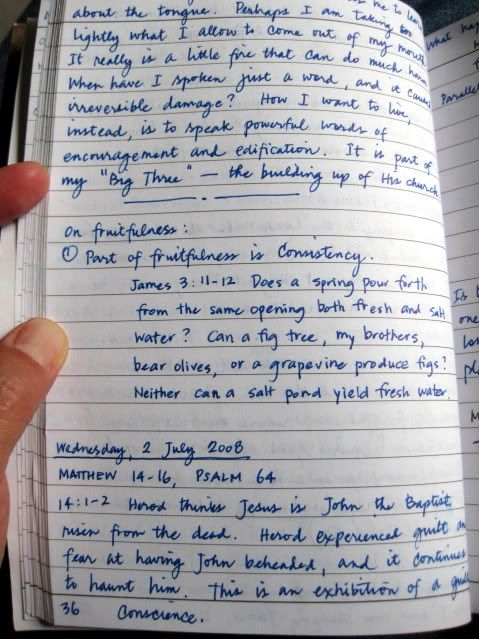 me to lear
about the tongue. Perhaps I am taking too
lightly what I allow to come out of my mouth.
It really is a little fire that can do much harm.
When have I spoken just a word, and it caused
irreversible damage? How I want to live,
instead, is to speak powerful words of
encouragement and edification. It is part of
my "Big Three" — the building up of His church.
On fruitfulness:
① Part of fruitfulness is Consistency.
James 3:11-12 Does a spring pour forth
from the same opening both fresh and salt
water? Can a fig tree, my brothers,
bear olives, or a grapevine produce figs?
Neither can a salt pond yield fresh water.
Wednesday, 2 July 2008
MATTHEW 14-16, PSALM 64
14:1-2 Herod thinks Jesus is John the Baptist,
risen from the dead. Herod experienced guilt an
fear at having John beheaded, and it continues
to haunt him. This is an exhibition of a guil
36 Conscience.
What hap
Parallel
Is t
one
los
pla